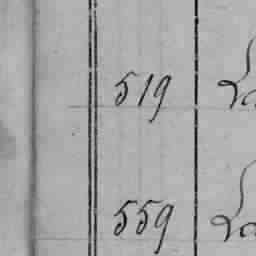 519
559